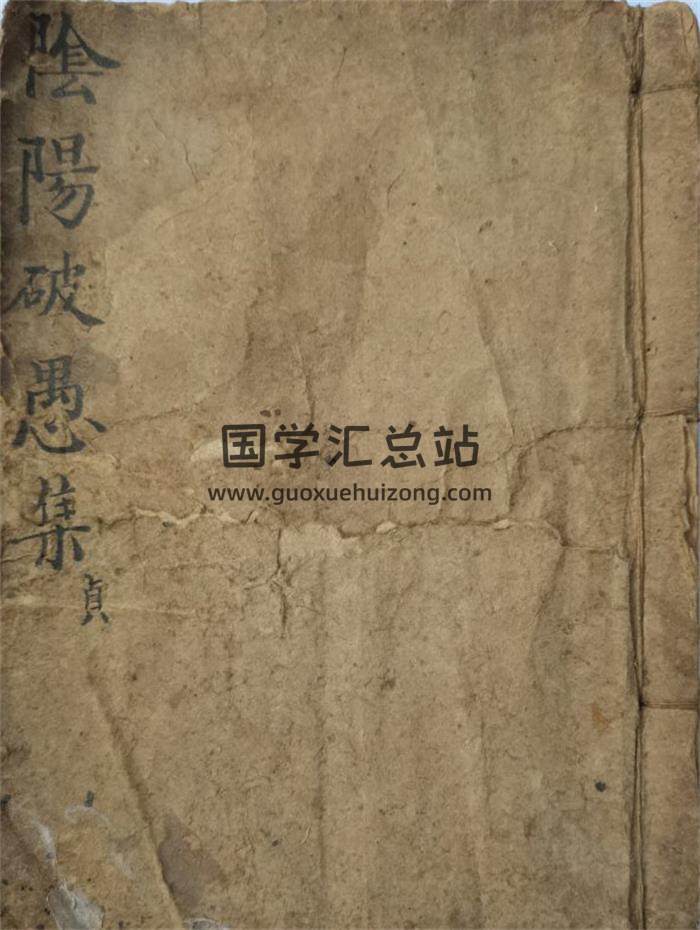 陰陽破愚集 貞
国学汇总站
www.guoxuehuizong.com